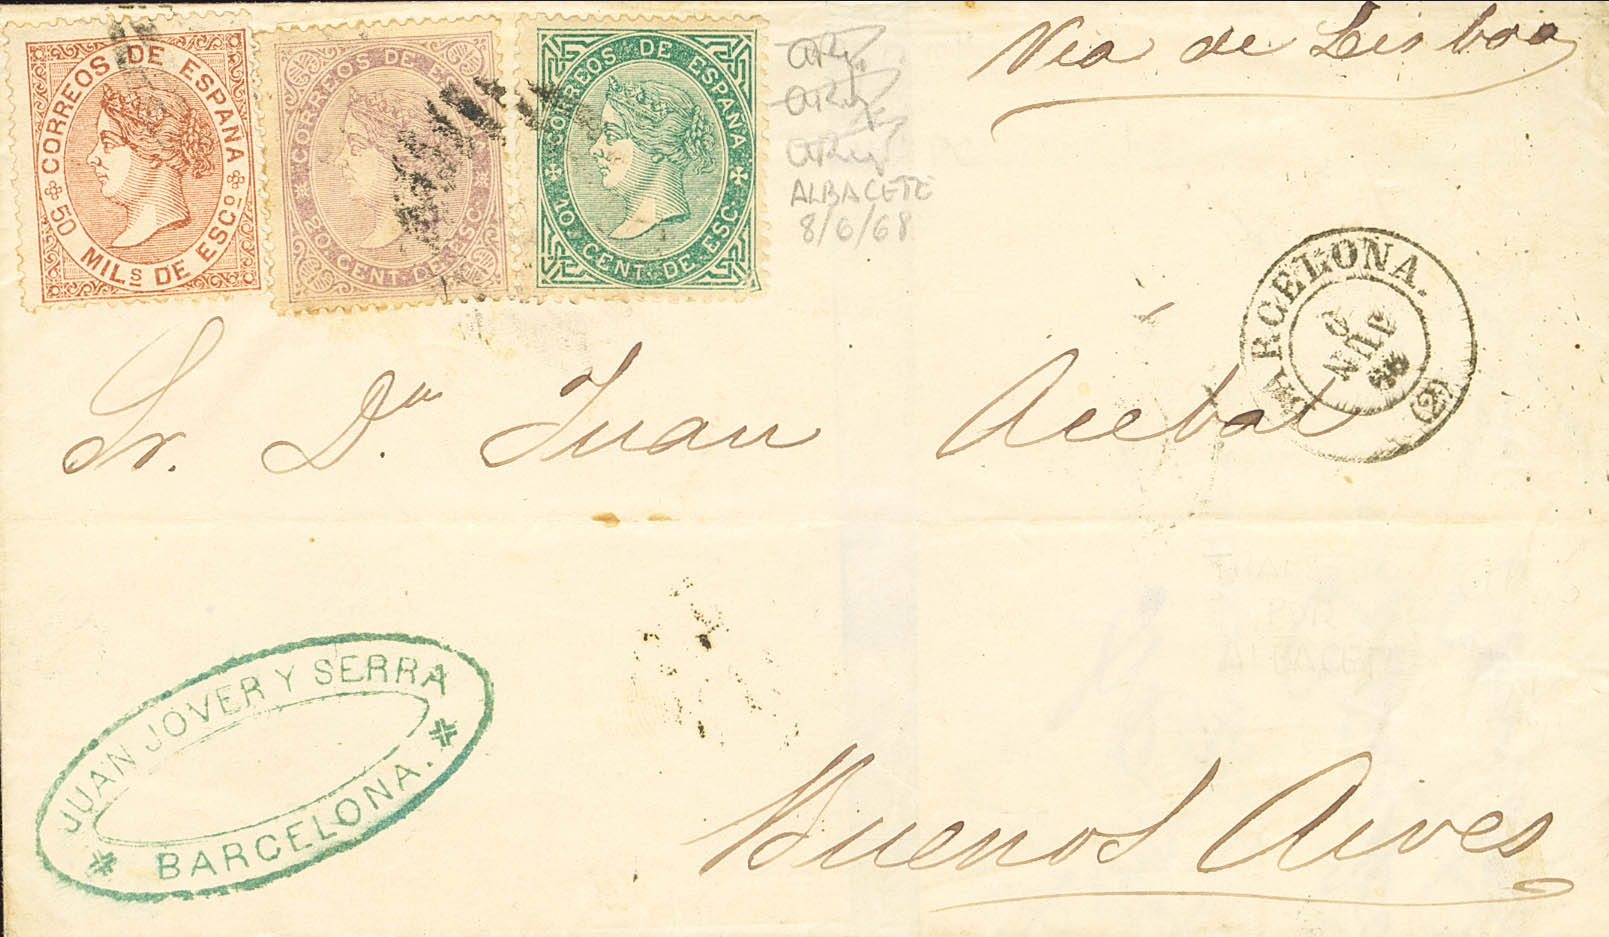 CORREOS DE ESPAÑA
50 MILS DE ESCO
CORREOS DE ESPAÑA
20 CENT. DE ESC.
CORREOS DE ESPAÑA
10 CENT. DE ESC.
ALBACETE
8/6/68
Via de Lisboa
BARCELONA.
(2)
Sr. Dn. Juan Acebal
JUAN JOVER Y SERRA
BARCELONA.
Buenos Aires